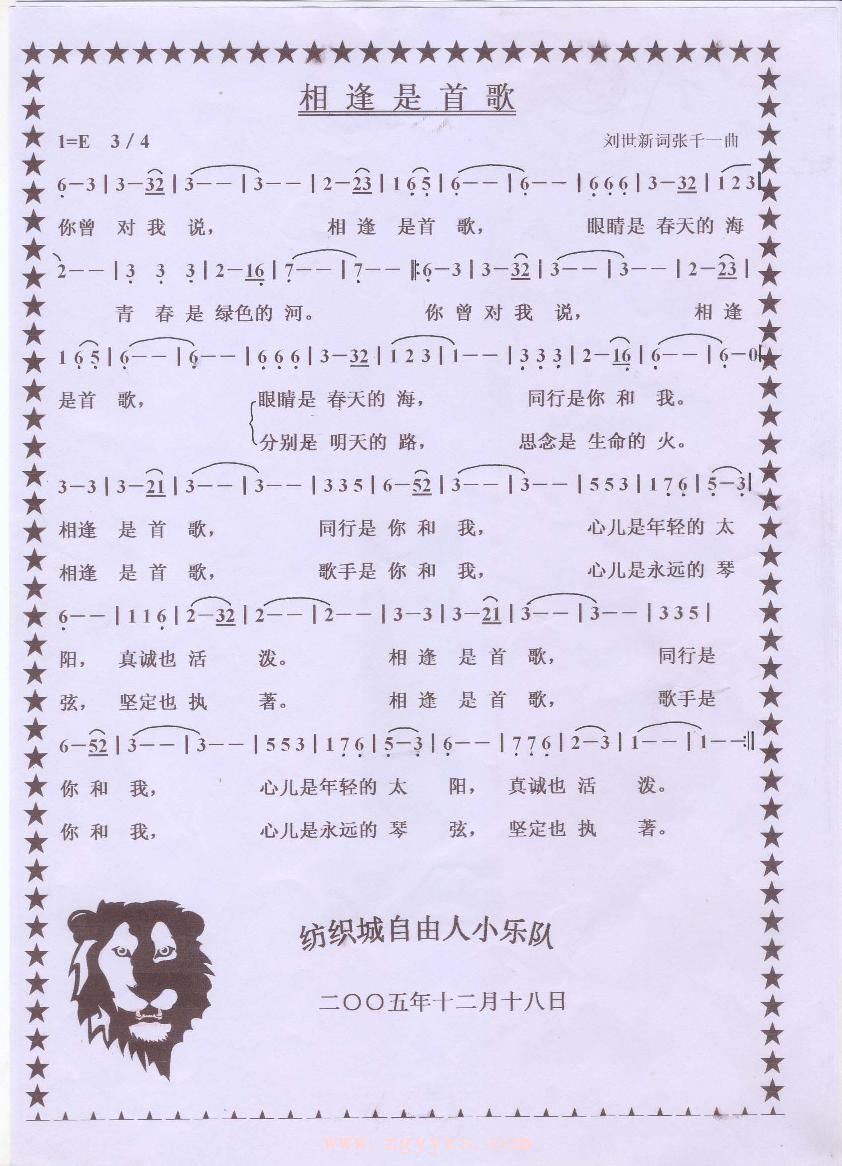 相逢是首歌
1=E 3/4 刘世新词张千一曲
6-3|3-32|3--|3--|2-23|1 6 5|6--|6--|6 6 6|3-32|1 2 3|
你曾 对 我 说， 相 逢 是首 歌， 眼睛是 春天的 海
2--|3 3 3|2-16|7--|7--‖:6-3|3-32|3--|3--|2-23|
青 春 是 绿色的 河。 你 曾 对 我 说， 相 逢
1 6 5|6--|6--|6 6 6|3-32|1 2 3|1--|3 3 3|2-16|6--|6-0|
是首 歌， 眼睛是 春天的 海， 同行是你 和 我。
分别是 明天的 路， 思念是 生命的 火。
3-3|3-21|3--|3--|3 3 5|6-52|3--|3--|5 5 3|1 7 6|5-3|
相逢 是 首 歌， 同行是 你 和 我， 心儿是年轻的 太
相逢 是 首 歌， 歌手是 你 和 我， 心儿是永远的 琴
6--|1 1 6|2-32|2--|2--|3-3|3-21|3--|3--|3 3 5|
阳， 真诚也 活 泼。 相 逢 是 首 歌， 同行是
弦， 坚定也 执 著。 相 逢 是 首 歌， 歌手是
6-52|3--|3--|5 5 3|1 7 6|5-3|6--|7 7 6|2-3|1--|1--:‖
你 和 我， 心儿是年轻的 太 阳， 真诚也 活 泼。
你 和 我， 心儿是永远的 琴 弦， 坚定也 执 著。
纺织城自由人小乐队
二〇〇五年十二月十八日